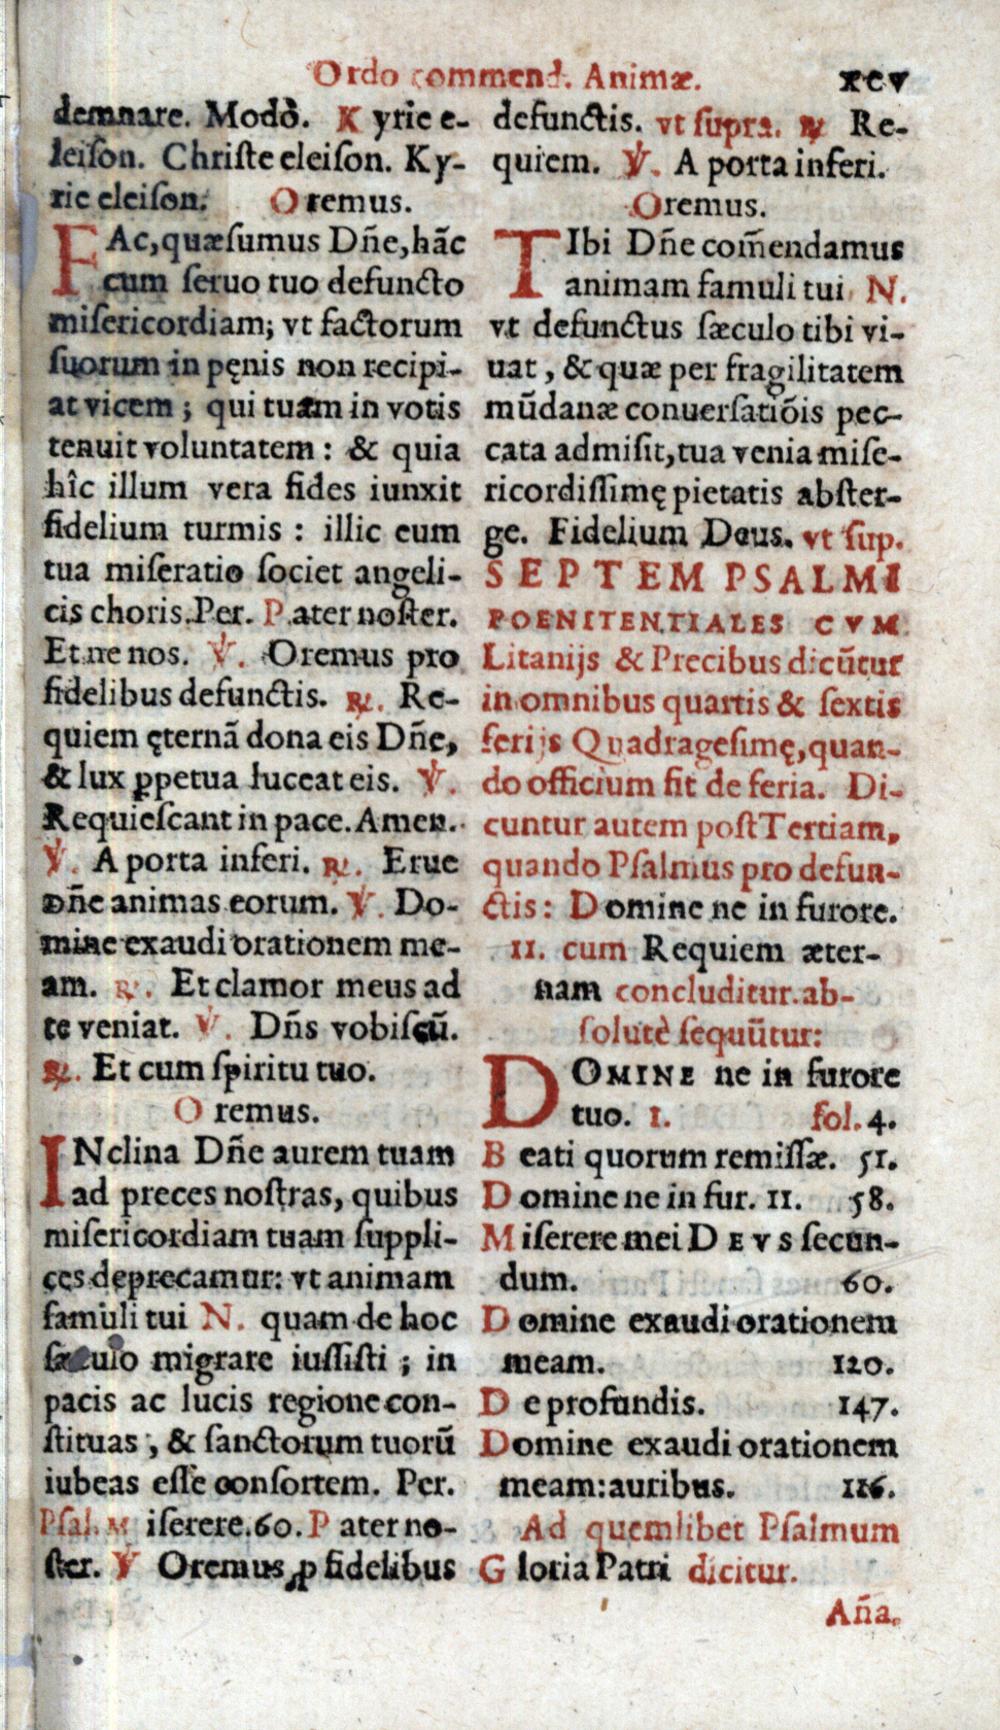 Ordo commend. Animæ. xcv
demnare. Modò. Kyrie e-
leiſon. Chriſte eleiſon. Ky-
rie eleiſon. Oremus.
FAc, quæſumus Dñe, hãc
cum ſeruo tuo defuncto
miſericordiam; vt factorum
ſuorum in pęnis non recipi-
at vicem; qui tuam in votis
tenuit voluntatem: & quia
hîc illum vera fides iunxit
fidelium turmis: illic eum
tua miſeratio ſociet angeli-
cis choris. Per. Pater noſter.
Et ne nos. ℣. Oremus pro
fidelibus defunctis. ℟. Re-
quiem ęternã dona eis Dñe,
& lux ꝑpetua luceat eis. ℣.
Requieſcant in pace. Amen.
℣. A porta inferi. ℟. Erue
Dñe animas eorum. ℣. Do-
mine exaudi orationem me-
am. ℟. Et clamor meus ad
te veniat. ℣. Dñs vobiſcũ.
℟. Et cum ſpiritu tuo.
Oremus.
INclina Dñe aurem tuam
ad preces noſtras, quibus
miſericordiam tuam ſuppli-
ces deprecamur: vt animam
famuli tui N. quam de hoc
ſæculo migrare iuſſiſti; in
pacis ac lucis regione con-
ſtituas, & ſanctorum tuorũ
iubeas eſſe conſortem. Per.
Pſal. Miſerere. 60. Pater no-
ſter. ℣ Oremus ꝓ fidelibus
defunctis. vt ſupra. ℟ Re-
quiem. ℣. A porta inferi.
Oremus.
TIbi Dñe com̃endamus
animam famuli tui N.
vt defunctus ſæculo tibi vi-
uat, & quæ per fragilitatem
mũdanæ conuerſatiõis pec-
cata admiſit, tua venia miſe-
ricordiſſimę pietatis abſter-
ge. Fidelium Deus. vt ſup.
SEPTEM PSALMI
POENITENTIALES CVM
Litanijs & Precibus dicũtur
in omnibus quartis & ſextis
ferijs Quadrageſimę, quan-
do officium fit de feria. Di-
cuntur autem poſt Tertiam,
quando Pſalmus pro defun-
ctis: Domine ne in furore.
II. cum Requiem æter-
nam concluditur. ab-
ſolutè ſequũtur:
DOMINE ne in furore
tuo. I. fol. 4.
Beati quorum remiſſæ. 51.
Domine ne in fur. II. 58.
Miſerere mei DEVS ſecun-
dum. 60.
Domine exaudi orationem
meam. 120.
De profundis. 147.
Domine exaudi orationem
meam: auribus. 116.
Ad quemlibet Pſalmum
Gloria Patri dicitur.
Aña.